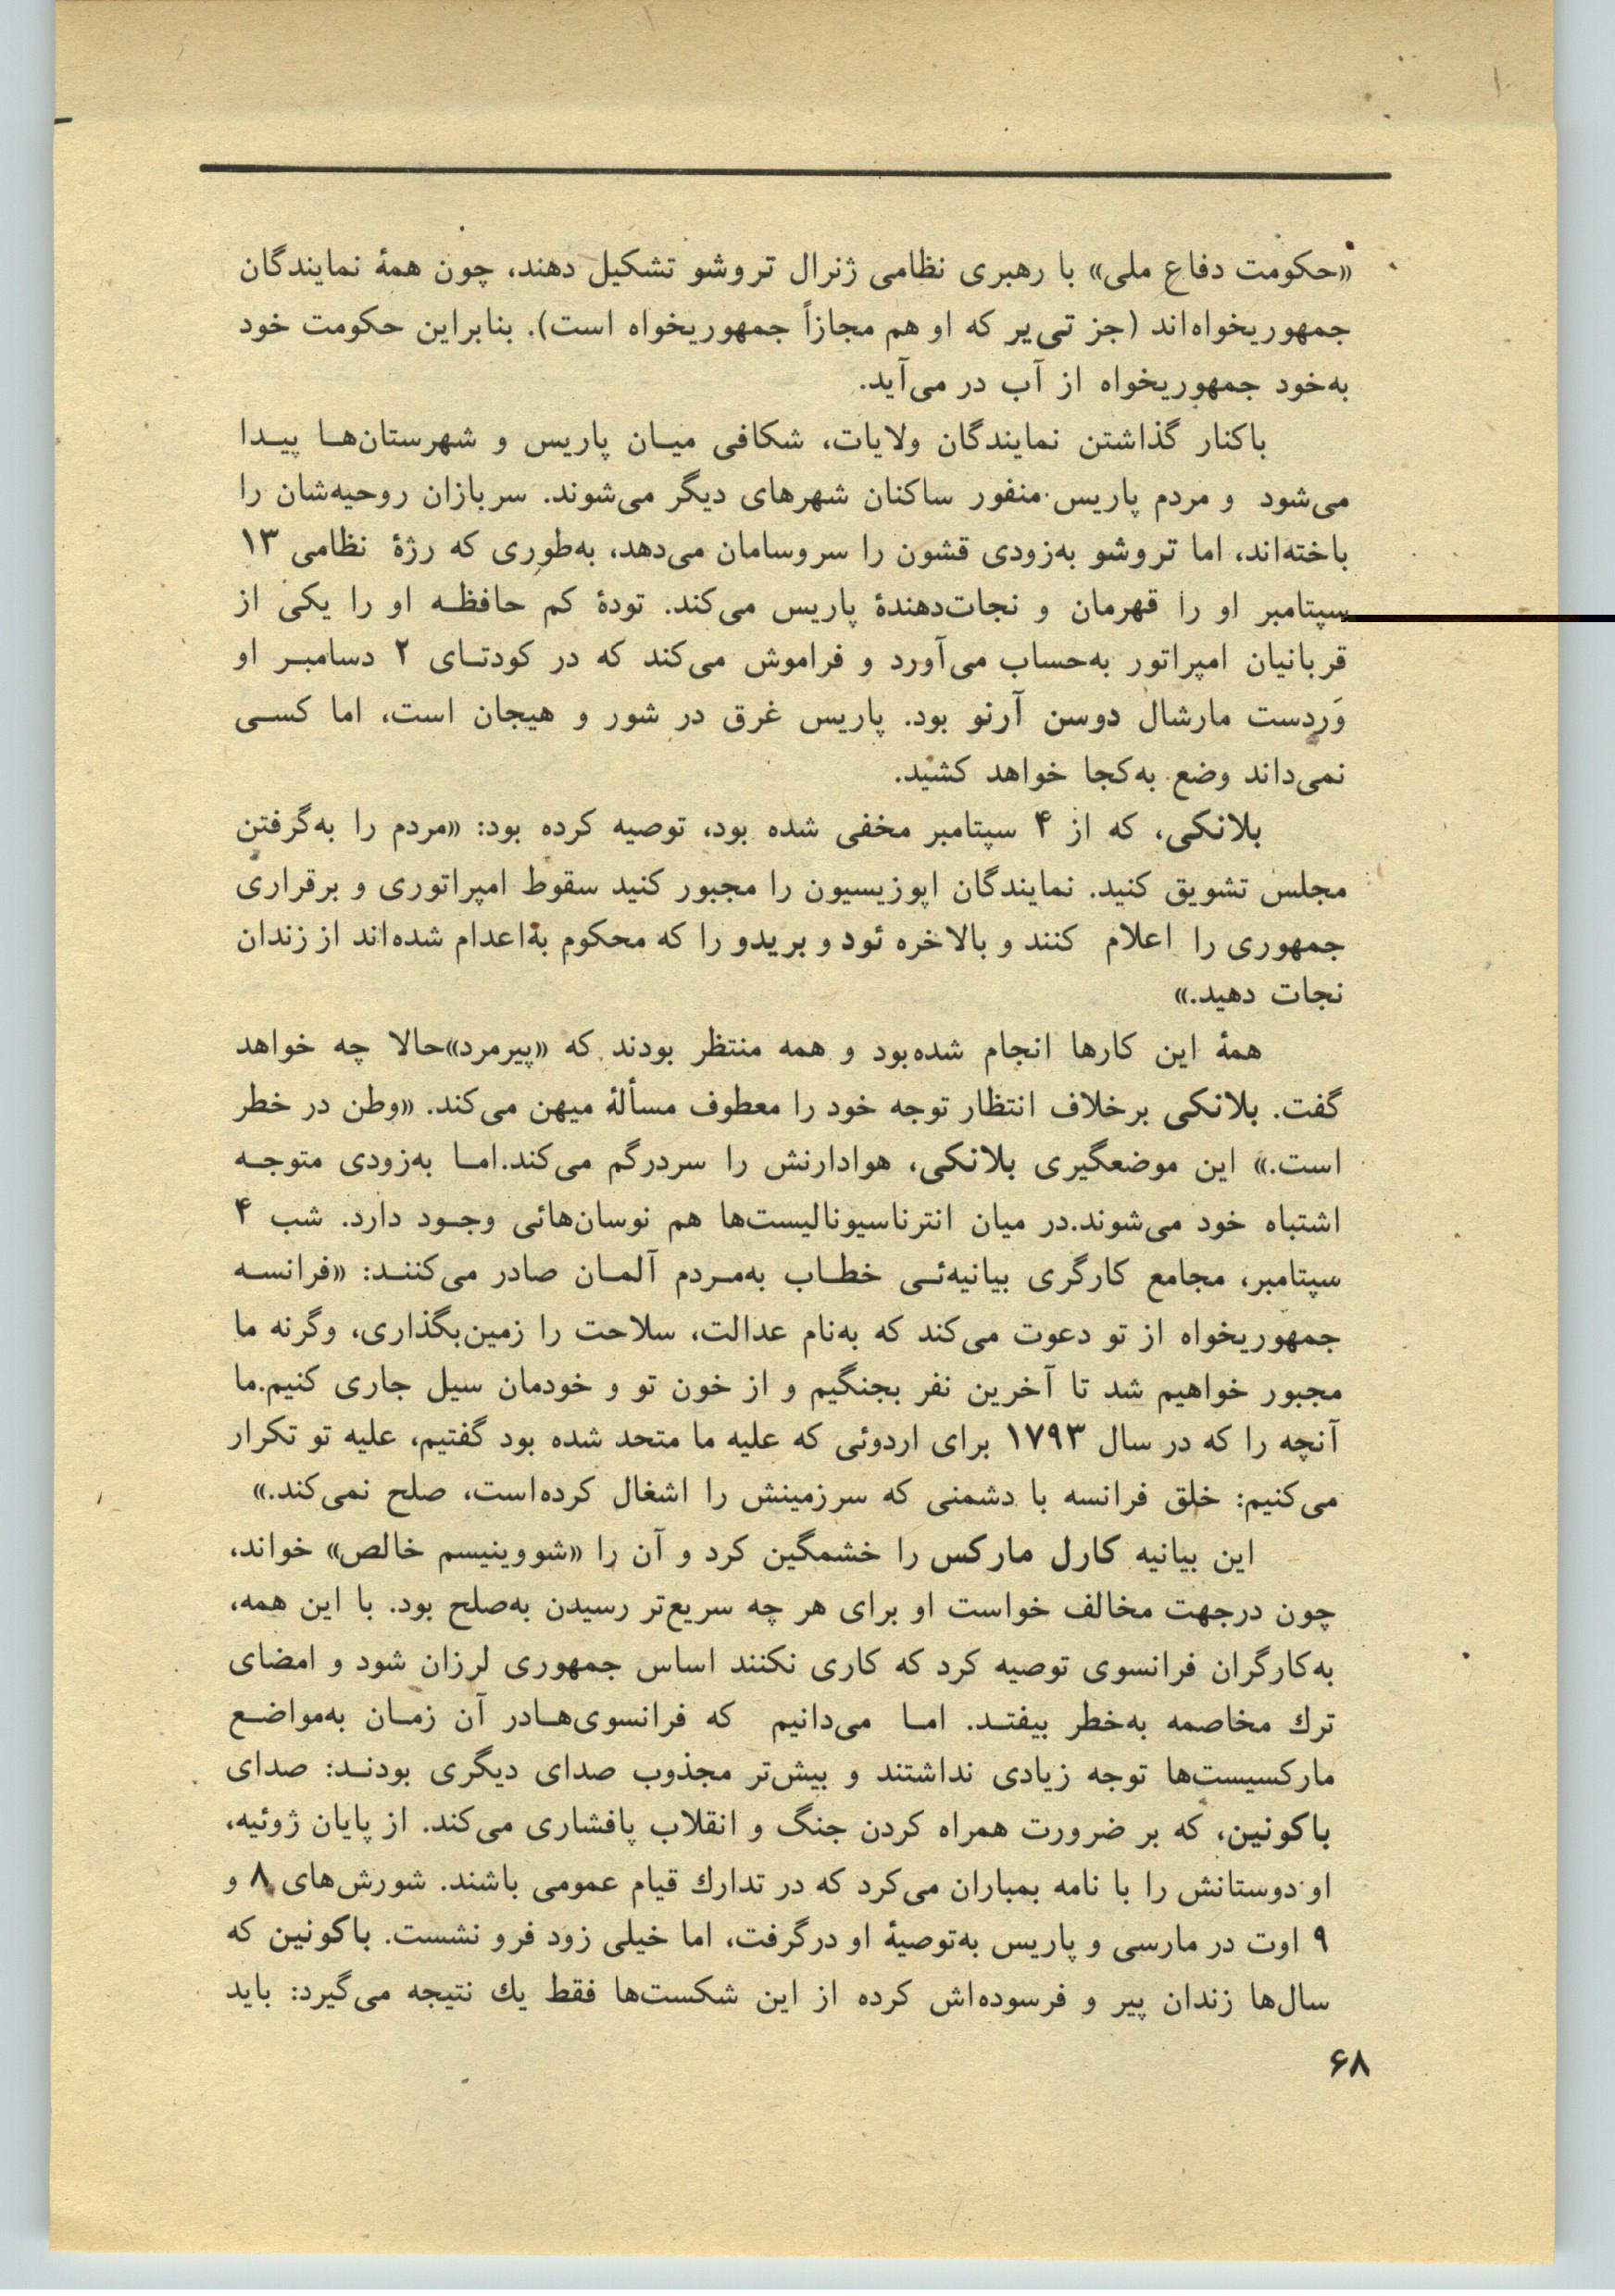 «حکومت دفاع ملی» با رهبری نظامی ژنرال تروشو تشکیل دهند، چون همهٔ نمایندگان
جمهوریخواه‌اند (جز تی‌یر که او هم مجازاً جمهوریخواه است). بنابراین حکومت خود
به‌خود جمهوریخواه از آب در می‌آید.
باکنار گذاشتن نمایندگان ولایات، شکافی میـان پاریس و شهرستان‌هـا پیـدا
می‌شود و مردم پاریس منفور ساکنان شهرهای دیگر می‌شوند. سربازان روحیه‌شان را
باخته‌اند، اما تروشو به‌زودی قشون را سروسامان می‌دهد، به‌طوری که رژهٔ نظامی ۱۳
سپتامبر او را قهرمان و نجات‌دهندهٔ پاریس می‌کند. تودهٔ کم حافظـه او را یکی از
قربانیان امپراتور به‌حساب می‌آورد و فراموش می‌کند که در کودتـای ۲ دسامبـر او
وَردست مارشال دوسن آرنو بود. پاریس غرق در شور و هیجان است، اما کسـی
نمی‌داند وضع به‌کجا خواهد کشید.
بلانکی، که از ۴ سپتامبر مخفی شده بود، توصیه کرده بود: «مردم را به‌گرفتن
مجلس تشویق کنید. نمایندگان اپوزیسیون را مجبور کنید سقوط امپراتوری و برقراری
جمهوری را اعلام کنند و بالاخره ئود و بریدو را که محکوم به‌اعدام شده‌اند از زندان
نجات دهید.»
همهٔ این کارها انجام شده‌بود و همه منتظر بودند که «پیرمرد»حالا چه خواهد
گفت. بلانکی برخلاف انتظار توجه خود را معطوف مسألهٔ میهن می‌کند. «وطن در خطر
است.» این موضعگیری بلانکی، هوادارنش را سردرگم می‌کند.امـا به‌زودی متوجـه
اشتباه خود می‌شوند.در میان انترناسیونالیست‌ها هم نوسان‌هائی وجـود دارد. شب ۴
سپتامبر، مجامع کارگری بیانیه‌ئـی خطـاب به‌مـردم آلمـان صادر می‌کننـد: «فرانسـه
جمهوریخواه از تو دعوت می‌کند که به‌نام عدالت، سلاحت را زمین‌بگذاری، وگرنه ما
مجبور خواهیم شد تا آخرین نفر بجنگیم و از خون تو و خودمان سیل جاری کنیم.ما
آنچه را که در سال ۱۷۹۳ برای اردوئی که علیه ما متحد شده بود گفتیم، علیه تو تکرار
می‌کنیم: خلق فرانسه با دشمنی که سرزمینش را اشغال کرده‌است، صلح نمی‌کند.»
این بیانیه کارل مارکس را خشمگین کرد و آن را «شووینیسم خالص» خواند،
چون درجهت مخالف خواست او برای هر چه سریع‌تر رسیدن به‌صلح بود. با این همه،
به‌کارگران فرانسوی توصیه کرد که کاری نکنند اساس جمهوری لرزان شود و امضای
ترك مخاصمه به‌خطر بیفتـد. امـا می‌دانیم که فرانسوی‌هـادر آن زمـان به‌مواضـع
مارکسیست‌ها توجه زیادی نداشتند و بیش‌تر مجذوب صدای دیگری بودنـد: صدای
باکونین، که بر ضرورت همراه کردن جنگ و انقلاب پافشاری می‌کند. از پایان ژوئیه،
او دوستانش را با نامه بمباران می‌کرد که در تدارك قیام عمومی باشند. شورش‌های ۸ و
۹ اوت در مارسی و پاریس به‌توصیهٔ او درگرفت، اما خیلی زود فرو نشست. باکونین که
سال‌ها زندان پیر و فرسوده‌اش کرده از این شکست‌ها فقط یك نتیجه می‌گیرد: باید
۶۸